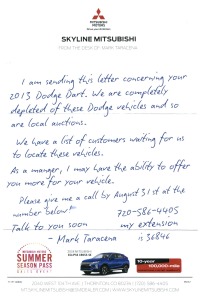 MITSUBISHI
MOTORS
Drive your Ambition
SKYLINE MITSUBISHI
FROM THE DESK OF MARK TARACENA
I am sending this letter concerning your
2013 Dodge Dart. We are completely
depleted of these Dodge vehicles and so
are local auctions.
We have a list of customers waiting for us
to locate these vehicles.
As a manager, I may have the ability to offer
you more for your vehicle.
Please give me a call by August 31st at the
number below! 720-586-4405
Talk to you soon my extension
- Mark Taracena is 36846
SUMMER
SEASON PASS
SALES EVENT
10-year
100,000-mile
2040 WEST 104TH AVE. | THORNTON, CO 80234 | 720-586-4405
SKYLINEMITSUBISHI@